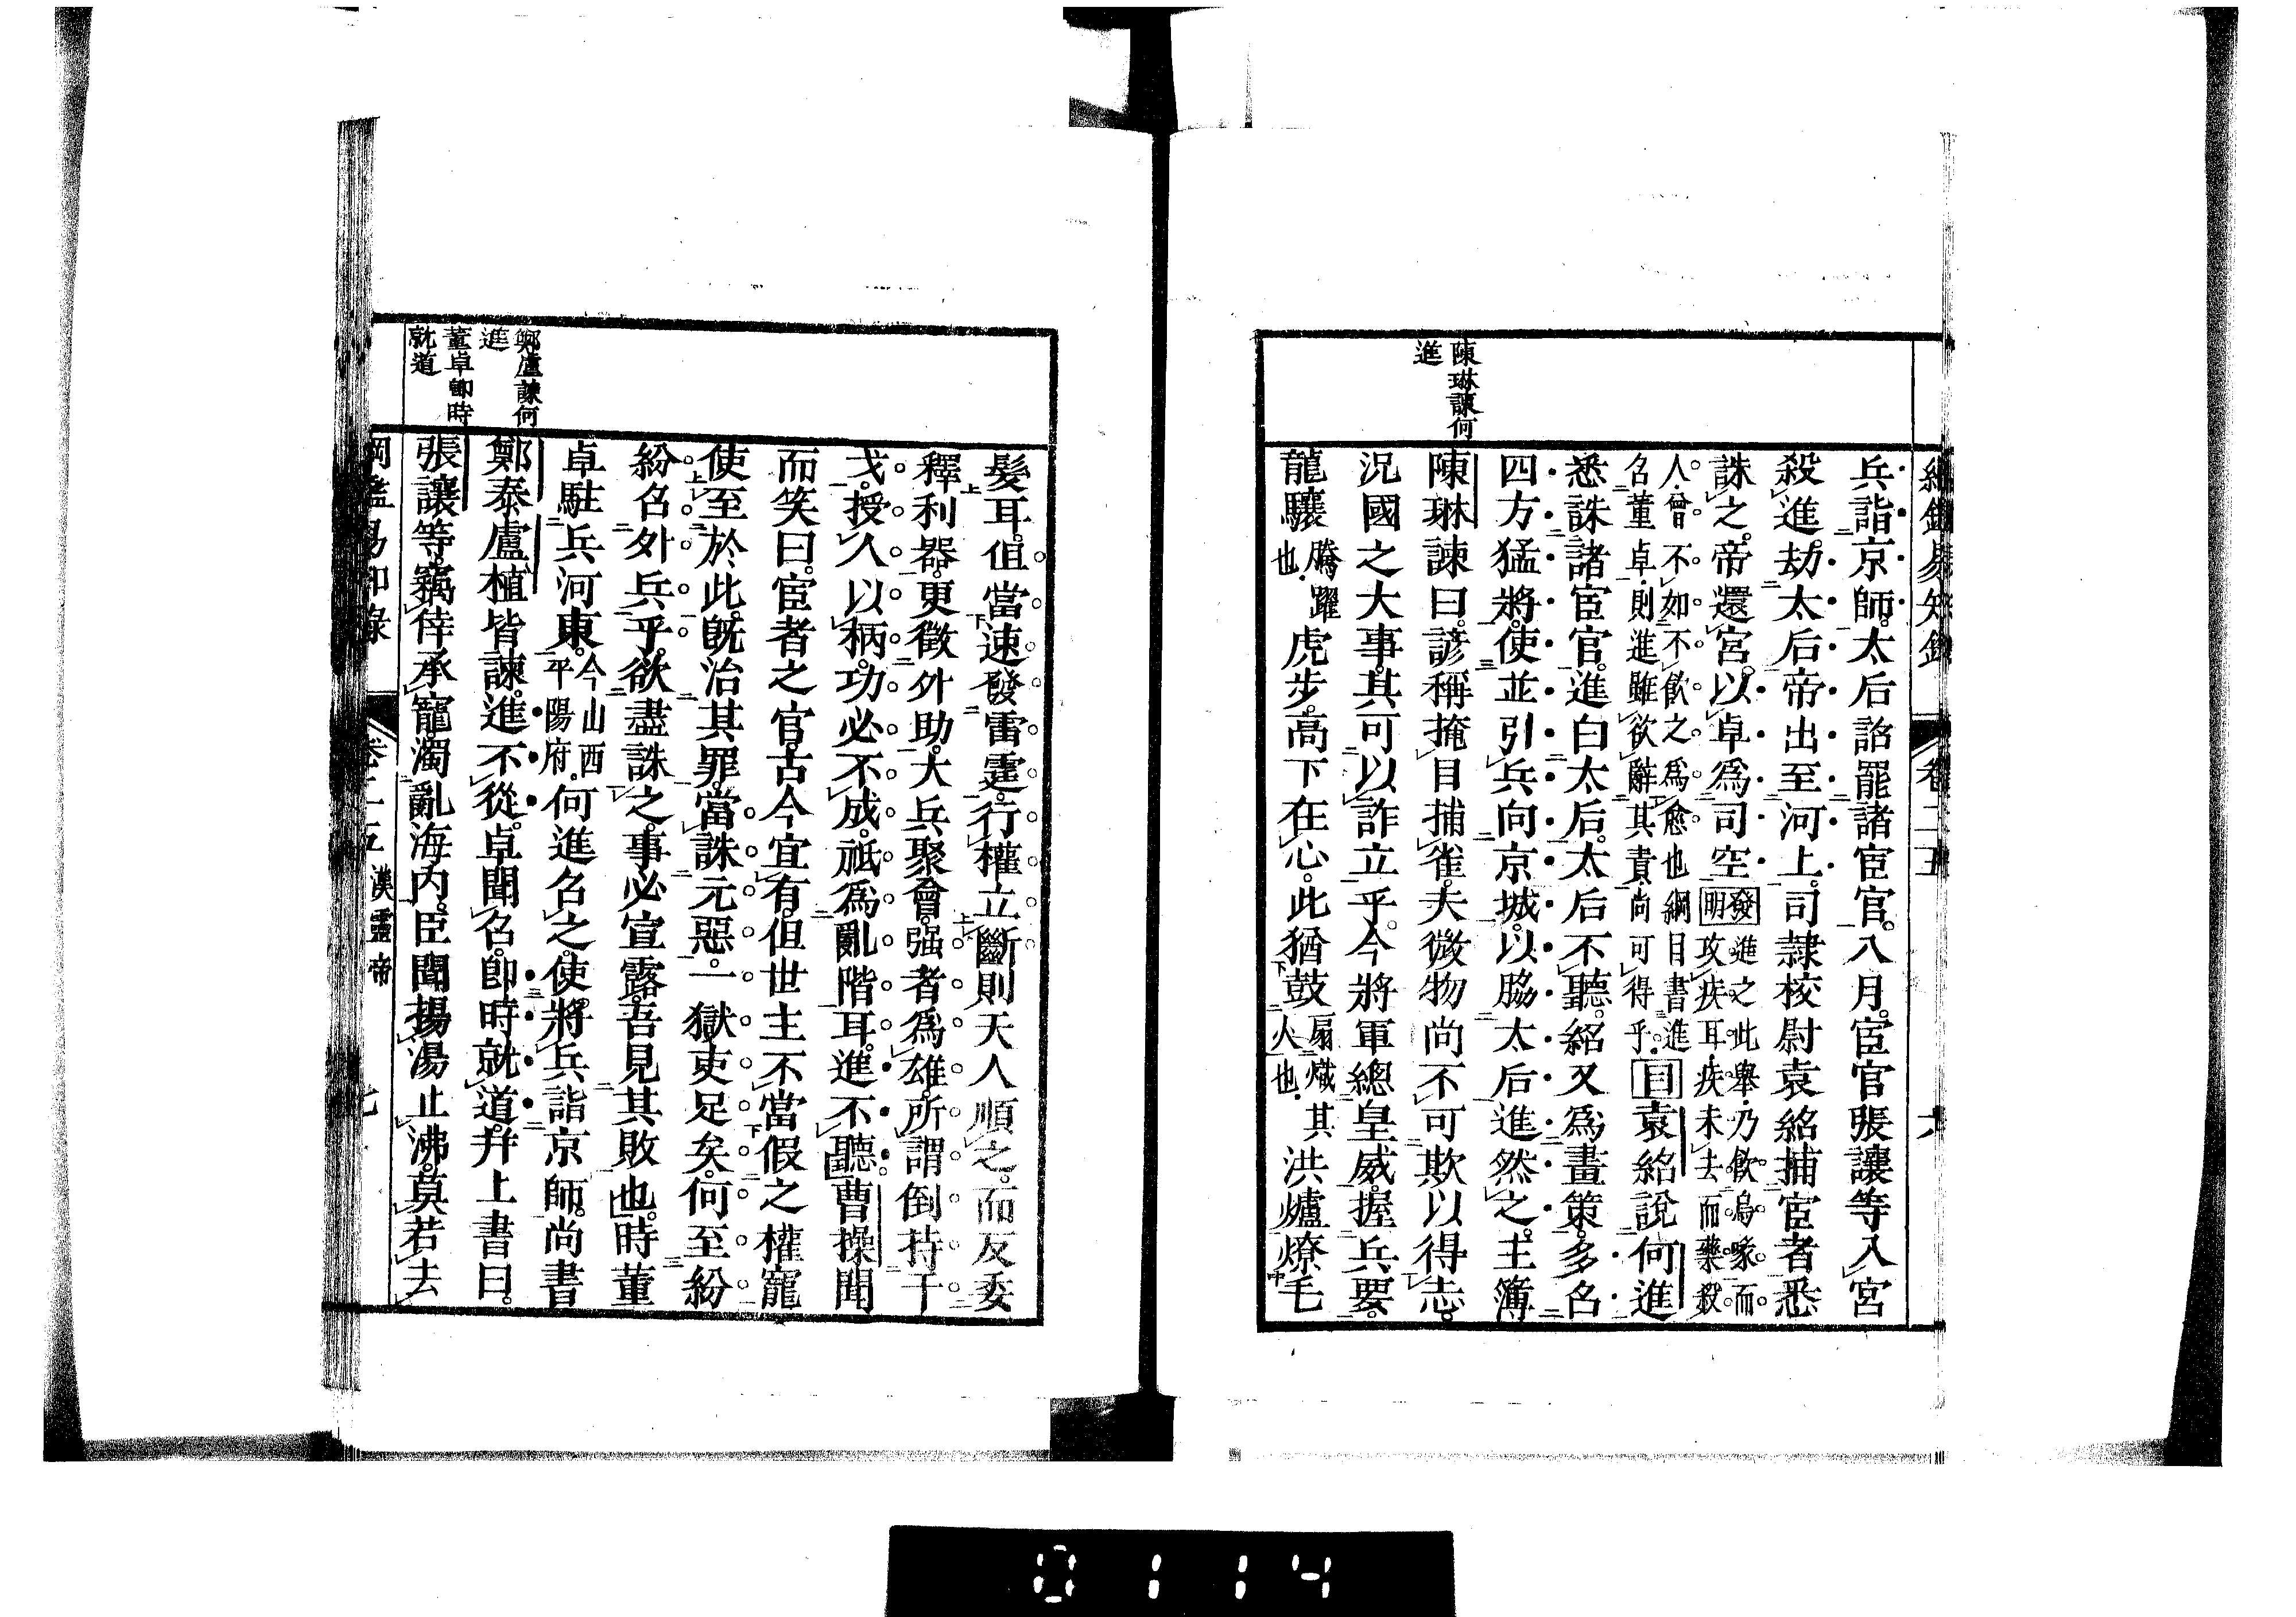 綱鑑易知錄 卷二五 六
陳琳諫何
進
兵詣京師。太后詔罷諸宦官。八月。宦官張讓等入宮
殺進。劫太后帝出至河上。司隷校尉袁紹捕宦者悉
誅之。帝還宮。以卓爲司空
發明
進之此舉。乃飮烏喙而
攻疾耳。疾未去而藥殺
人。曾不如不飮之爲愈也綱目書進
召董卓。則進雖欲辭其責。尚可得乎。
目袁紹說何進
悉誅諸宦官。進白太后。太后不聽。紹又爲畫策。多召
四方猛將。使並引兵向京城。以脇太后進然之。主簿
陳琳諫曰。諺稱掩目捕雀。夫微物尚不可欺以得志。
況國之大事。其可以詐立乎。今將軍總皇威。握兵要。
龍驤
騰躍
也。
虎步。高下在心。此猶鼓
扇熾其
火也。
洪爐燎毛
髮耳。但當速發雷霆。行權立斷則天人順之。而反委
釋利器。更徵外助。大兵聚會。强者爲雄。所謂倒持干
戈。授人以柄。功必不成。祇爲亂階耳。進不聽曹操聞
而笑曰。宦者之官。古今宜有。但世主不當假之權寵
使至於此。旣治其罪。當誅元惡。一獄吏足矣。何至紛
紛召外兵乎。欲盡誅之。事必宣露。吾見其敗也。時董
卓駐兵河東。
今山西
平陽府。
何進召之。使將兵詣京師。尚書
鄭泰盧植皆諫。進不從。卓聞召。卽時就道。幷上書曰。
張讓等竊倖承寵。濁亂海內。臣聞揚湯止沸。莫若去
鄭盧諫何
進
董卓卽時
就道
綱鑑易知錄 卷二五 漢靈帝 七
0114